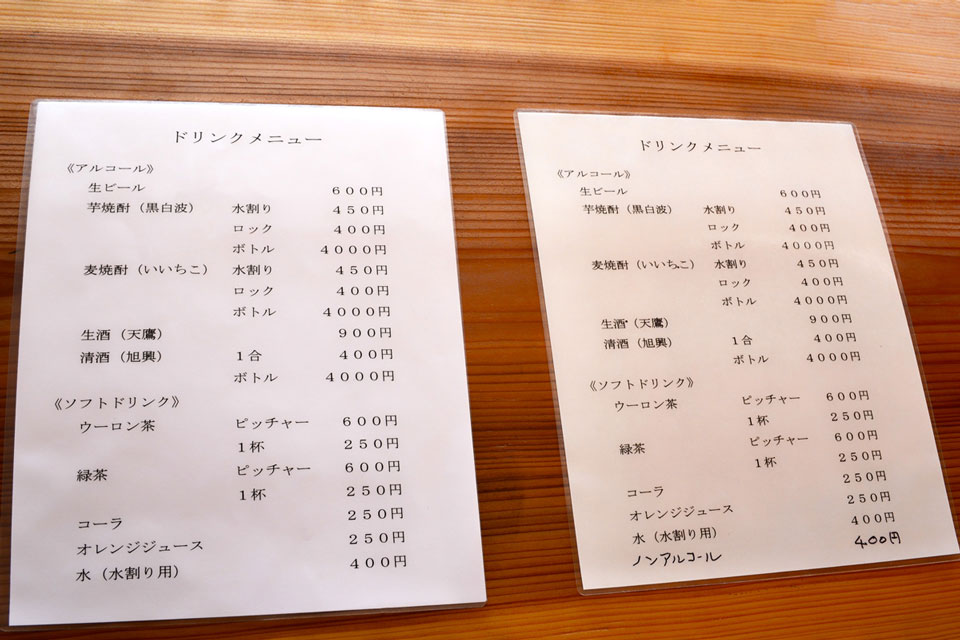 ドリンクメニュー
《アルコール》
生ビール 600円
芋焼酎（黒白波） 水割り 450円
ロック 400円
ボトル 4000円
麦焼酎（いいちこ） 水割り 450円
ロック 400円
ボトル 4000円
生酒（天鷹） 900円
清酒（旭興） 1合 400円
ボトル 4000円
《ソフトドリンク》
ウーロン茶 ピッチャー 600円
1杯 250円
緑茶 ピッチャー 600円
1杯 250円
コーラ 250円
オレンジジュース 250円
水（水割り用） 400円
ドリンクメニュー
《アルコール》
生ビール 600円
芋焼酎（黒白波） 水割り 450円
ロック 400円
ボトル 4000円
麦焼酎（いいちこ） 水割り 450円
ロック 400円
ボトル 4000円
生酒（天鷹） 900円
清酒（旭興） 1合 400円
ボトル 4000円
《ソフトドリンク》
ウーロン茶 ピッチャー 600円
1杯 250円
緑茶 ピッチャー 600円
1杯 250円
コーラ 250円
オレンジジュース 250円
水（水割り用） 400円
ノンアルコール 400円